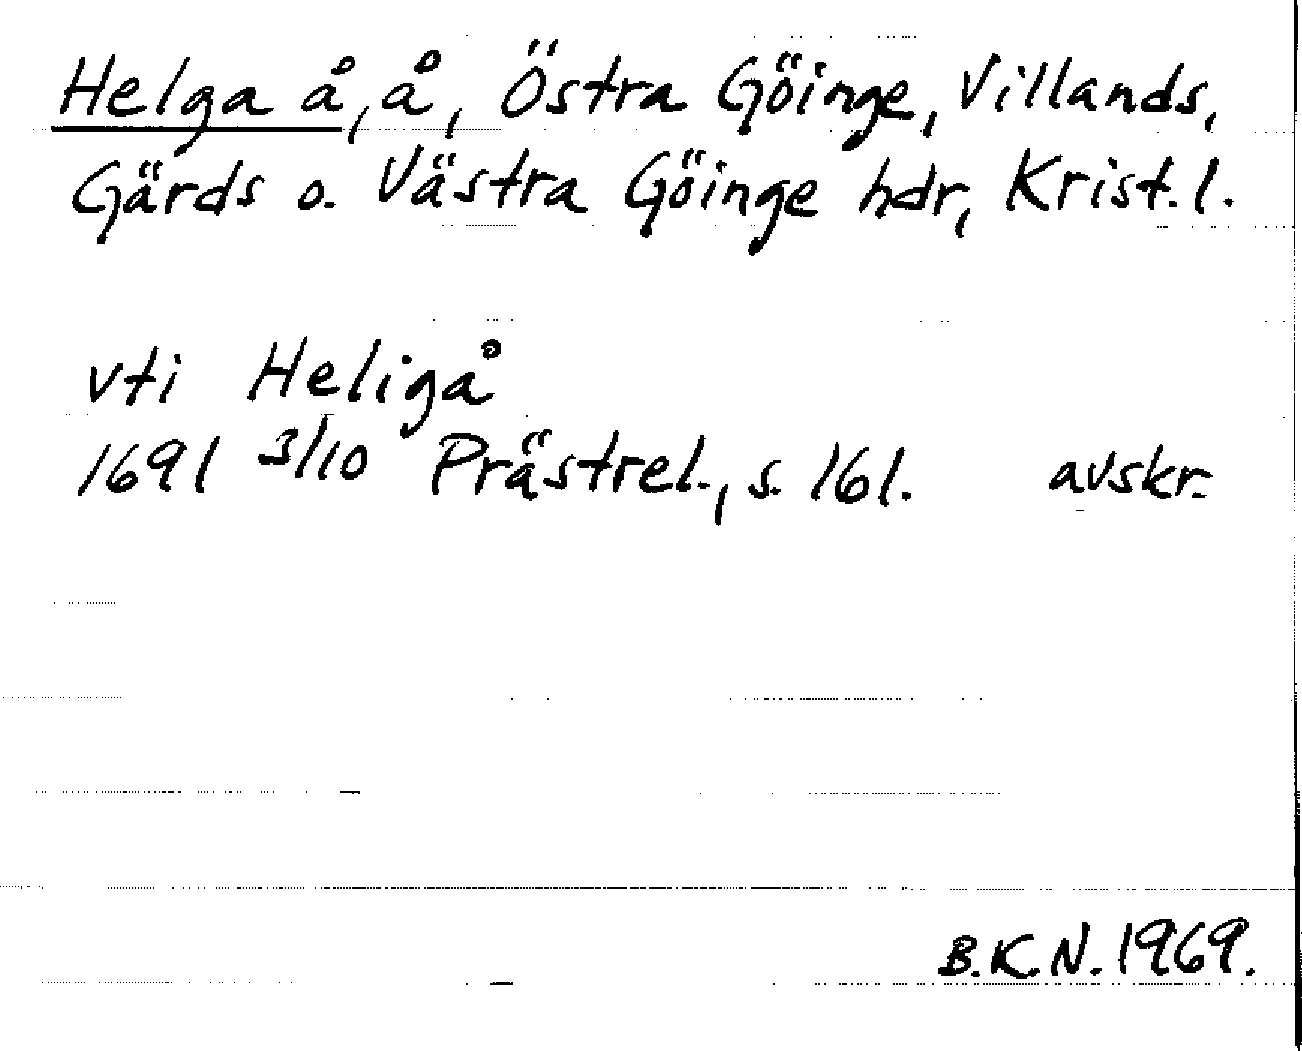 Helga å, å, Östra Göinge, Villands,
Gärds o. Västra Göinge hdr, Krist. l.
vti Heligå
1691 3/10 Prästrel., s. 161. avskr.
B.K.N. 1969.